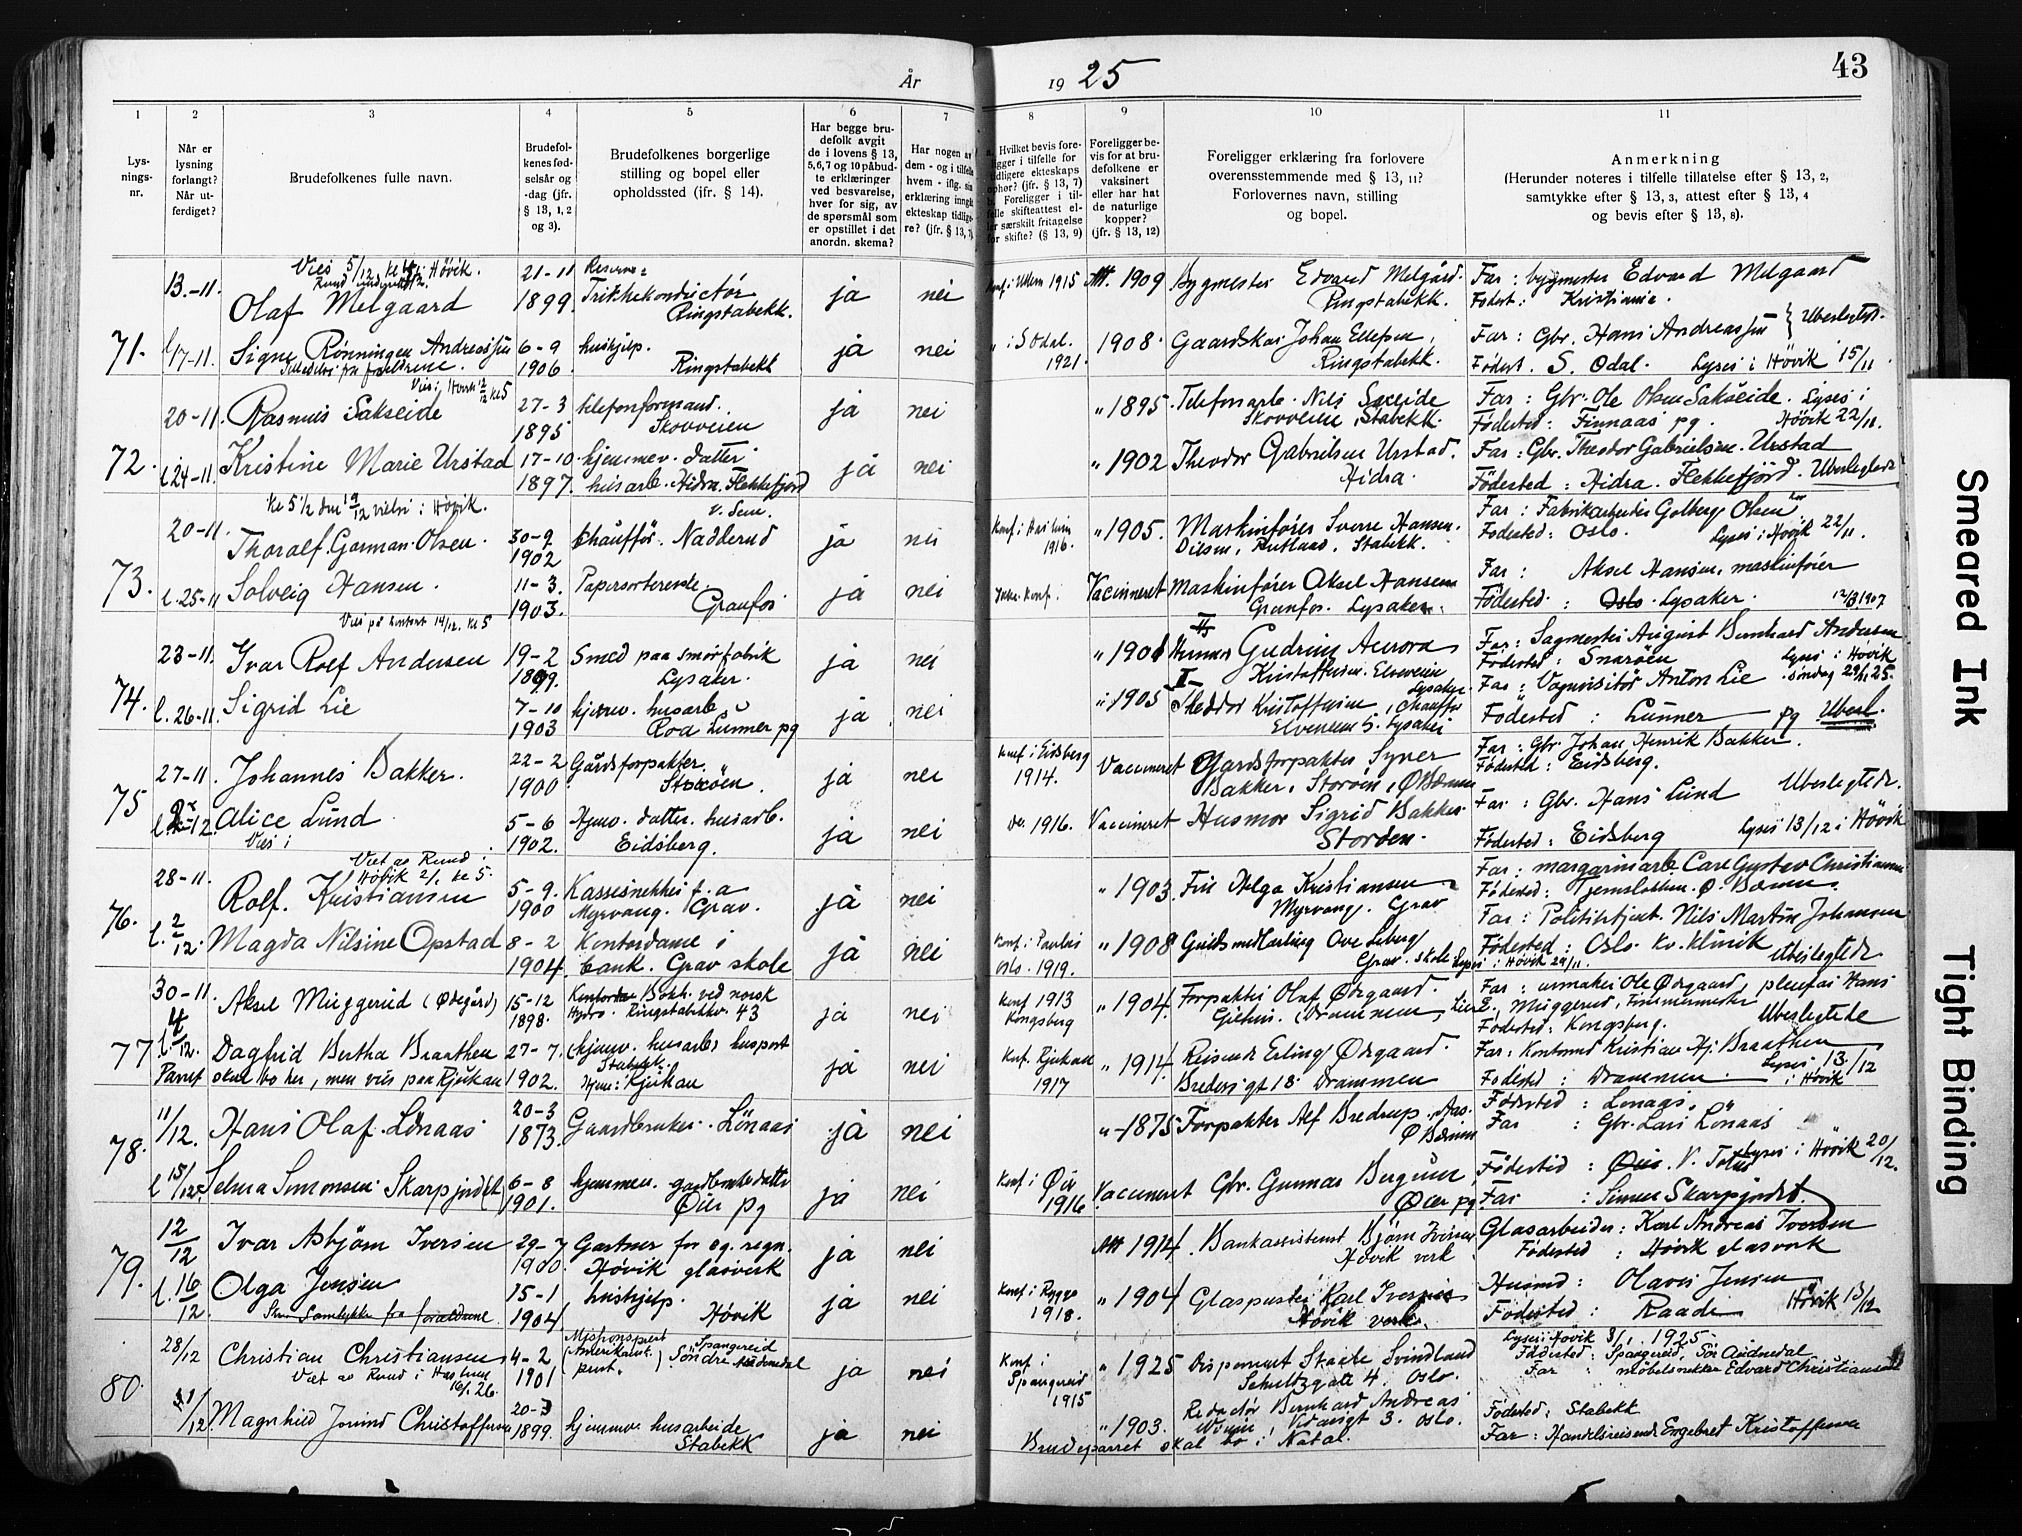 År 1925
43
1
Lys-
nings-
nr.
2
Når er
lysning
forlangt?
Når ut-
ferdiget?
3
Brudefolkenes fulle navn.
4
Brudefol-
kenes fød-
selsår og
-dag (jfr.
§ 13, 1, 2
og 3).
5
Brudefolkenes borgerlige
stilling og bopel eller
opholdssted (jfr. § 14).
6
Har begge bru-
defolk avgit
de i lovens § 13,
5, 6, 7 og 10 påbud-
te erklæringer
ved besvarelse,
hver for sig, av
de spørsmål som
er opstillet i det
anordn. skema?
7
Har nogen av
dem - og i tilfelle
hvem - iflg. sin
erklæring inngåt
ekteskap tidlige-
re? (jfr. § 13, 7)
8
a. Hvilket bevis fore-
ligger i tilfelle for
tidligere ekteskaps
ophør? (jfr. § 13, 7)
b. Foreligger i til-
felle skifteattest el-
ler særskilt fritagelse
for skifte? (§ 13, 9)
9
Foreligger be-
vis for at bru-
defolkene er
vaksinert
eller har hat
de naturlige
kopper?
(jfr. § 13, 12)
10
Foreligger erklæring fra forlovere
overensstemmende med § 13, 11?
Forlovernes navn, stilling
og bopel.
11
Anmerkning
(Herunder noteres i tilfelle tillatelse efter § 13, 2,
samtykke efter § 13, 3, attest efter § 13, 4
og bevis efter § 13, 8).
71.
13.-11.
Olaf Melgaard
21-11
1899.
Ringstabekk.
ja
nei
1915
Att. 1909
Bygmester Edvard Melgård.
Ringstabekk.
Far: bygmester Edvard Melgaard
Fødest: Kristiania.
l. 17-11.
Signe Rønningen Andreassen
6-9
1906
hushjelp.
Ringstabekk
ja
nei
" i S. Odal.
1921.
1908.
Gaardskar Johan Ellefsen,
Ringstabekk.
Far: Gbr. Hans Andreassen } Ubeslegted.
Fødest. S. Odal. Lyses i Høvik 15/11
72.
20-11.
Rasmus Sakseide
27-3
1895
telefonformand.
Skovveien
ja
nei
" 1895.
Telefonarb. Nils Sakseide
Skovveien, Stabekk.
Far: Gbr. Ole Olsen Sakseide. Lyses i
Fødested: Finnaas pg. Høvik 22/11.
l. 24-11.
Kristine Marie Urstad
17-10
1897.
hjemmev. datter
husarb. Hidra. Flekkefjord
ja
nei
" 1902
Theodor Gabrielsen Urstad.
Hidra.
Far: Gbr. Theodor Gabrielsen Urstad
Fødested: Hidra. Flekkefjord. Ubeslegtede
73.
20-11.
Thoralf Garman Olsen.
30-9
1902
chauffør. Nadderud
ja
nei
1916.
" 1905.
Maskinfører Sverre Hansen.
Stabekk.
Far: Fabrikarbeider Golberg Olsen
Fødested: Oslo. Lyses i Høvik 22/11.
l. 25-11
Solveig Hansen.
11-3.
1903.
Papersorterende.
Granfos
ja
nei
Ikke konf.
Vaccineret
Maskinfører Aksel Hansen
Granfos. Lysaker.
Far: Aksel Hansen, maskinfører
Fødested: Oslo. Lysaker.
74.
Vies på kontoret 14/12. kl 5
23-11.
Ivar Rolf Andersen
19-2
1899.
Smed paa smørfabrik
Lysaker.
ja
nei
" 1901
II
Gudrun Aurora
Kristoffersen. Elveveien
Lysaker.
Far: Sagmester August Bernhard Andersen
Fødested: Snarøen Lyses i Høvik
søndag 29/11 25.
l. 26-11.
Sigrid Lie
7-10
1903
hjemv. husarb.
Roa Lunner pg
ja
nei
1905
I
Kristoffersen, Chauffør
Elveveien 5. Lysaker
Far: Vognvisitør Anton Lie
Fødested: Lunner pg Ubesl.
75
27-11.
Johannes Bakker.
22-2
1900
Gårdsforpakter.
Storøen.
ja
nei
Konf i Eidsberg
1914.
Vaccineret
Gardsforpakter Syver
Bakker, Storøen, Ø Bærum
Far: Gbr. Johan Henrik Bakker.
Fødested: Eidsberg.
Alice Lund.
Vies i
5-6
1902.
Hjemv. datter. husarb.
Eidsberg.
ja
nei
Do. 1916.
Vaccineret
Husmor Sigrid Bakker
Storøen.
Far: Gbr. Hans Lund Ubeslegtede.
Fødested: Eidsberg Lyses 13/12 i Høvik
76.
28-11.
Viet av Ruud i
Høvik 2/1 kl 5.
Rolf. Kristiansen
5-9.
1900
Kassesnekker f. a
Myrvang. Grav.
ja
nei
" 1903.
Fru Helga Kristiansen
Myrvang. Grav
Far: margarinarb. Carl Gustav Christiansen
Fødested: Tjernslotten. Ø. Bærum.
l. 2/12.
Magda Nilsine Opstad
8-2
1904.
Kontordame i
bank. Grav skole
ja
nei
Konf. i Paulus
Oslo. 1919.
" 1908
Ove Seberg
Grav. skole
Far: Politibetjent. Nils Martin Johansen
Fødested: Oslo. Kv. klinik Ubeslegtede
Lyses i Høvik 29/11.
77
30-11
Aksel Muggerud (Ødegård)
15-12
1898.
Kontordm Bokh. ved norsk
Hydro. Ringstabekkv. 43
ja
nei
Konf 1913
Kongsberg
" 1904.
Forpakter Olaf Ødegaard.
Gilhus. (Drammen, Lier
Far: urmaker Ole Ødegaard, pleiefar Hans
E. Muggerud, Tømmermester
Fødested: Kongsberg. Ubeslegtede
l. 4/12.
Dagfrid Bertha Braathen
27-7.
1902.
hjemv. husarb. huspost
Stabekk.
Hjem: Rjukan
ja
nei
Parret skal bo her, men vies paa Rjukan
Konf. Rjukan
1917
" 1914.
Reisende Erling Ødegaard.
Bredersgt 18. Drammen
Far: Kontormd Kristian Hj. Braathen
Fødested: Drammen. Lyses 13/12
i Høvik
78.
11/12.
Hans Olaf Lönaas
20-3
1873.
Gaardbruker. Lönaas
ja
nei
" 1875
Forpakter Alf Bredrup. Aas.
Ø Bærum
Fødested: Lonaas.
Far: Gbr. Lars Lönaas
l 15/12
Selma Simonsen Skarpjordet
6-8
1901.
hjemmev. gaardbrukerdatter
Öier pg
ja
nei
Konf i Öier
1916
Vaccineret
Gbr. Gunnar Bergum,
Öier pg
Fødested: Öier. V. Toten Lyses i Høvik 20/12.
Far: Simen Skarpjordet.
79.
12/12
Ivar Asbjørn Iversen
29-7
1900.
Gartner for eg. regn.
Høvik glasverk
ja
nei
Att 1914.
Bankassistent Bjørn Iversen
Høvik verk
Glasarbeider: Karl Andreas Iversen
Fødested: Høvik glasverk
l. 16/12
Olga Jensen
15-1
1904.
hushjelp.
Høvik
ja
nei
Konf. i Rygge
1918.
" 1904
Glaspuster Karl Iversen
Høvik verk.
Husmd: Olaves Jensen
Fødested: Raade Høvik 13/12
80.
28/12
Christian Christiansen
Viet av Ruud i Haslum
4-2
1901
Misjonsprest
(Amerikansk)
prest.
Spangereid
Söndre
ja
nei
Konf. i
Spangereid
1915
" 1925
Disponent Staale Svindland
Schultzgate 4. Oslo.
Lyses Høvik 3/1. 1925.
Fødested: Spangereid. Sör Audnedal
Far: möbelsnekker Edvard Christiansen
Magnhild Jorund Christoffersen
20-3
1899.
hjemmev. husarbeide
Stabekk
ja
nei
" 1903.
Redaktör Bernhard Andreas
3. Oslo.
Brudeparret skal bo i Natal.
Fødested: Stabekk
Far: Handelsreisende Engebret Kristoffersen
Smeared Ink
Tight Binding